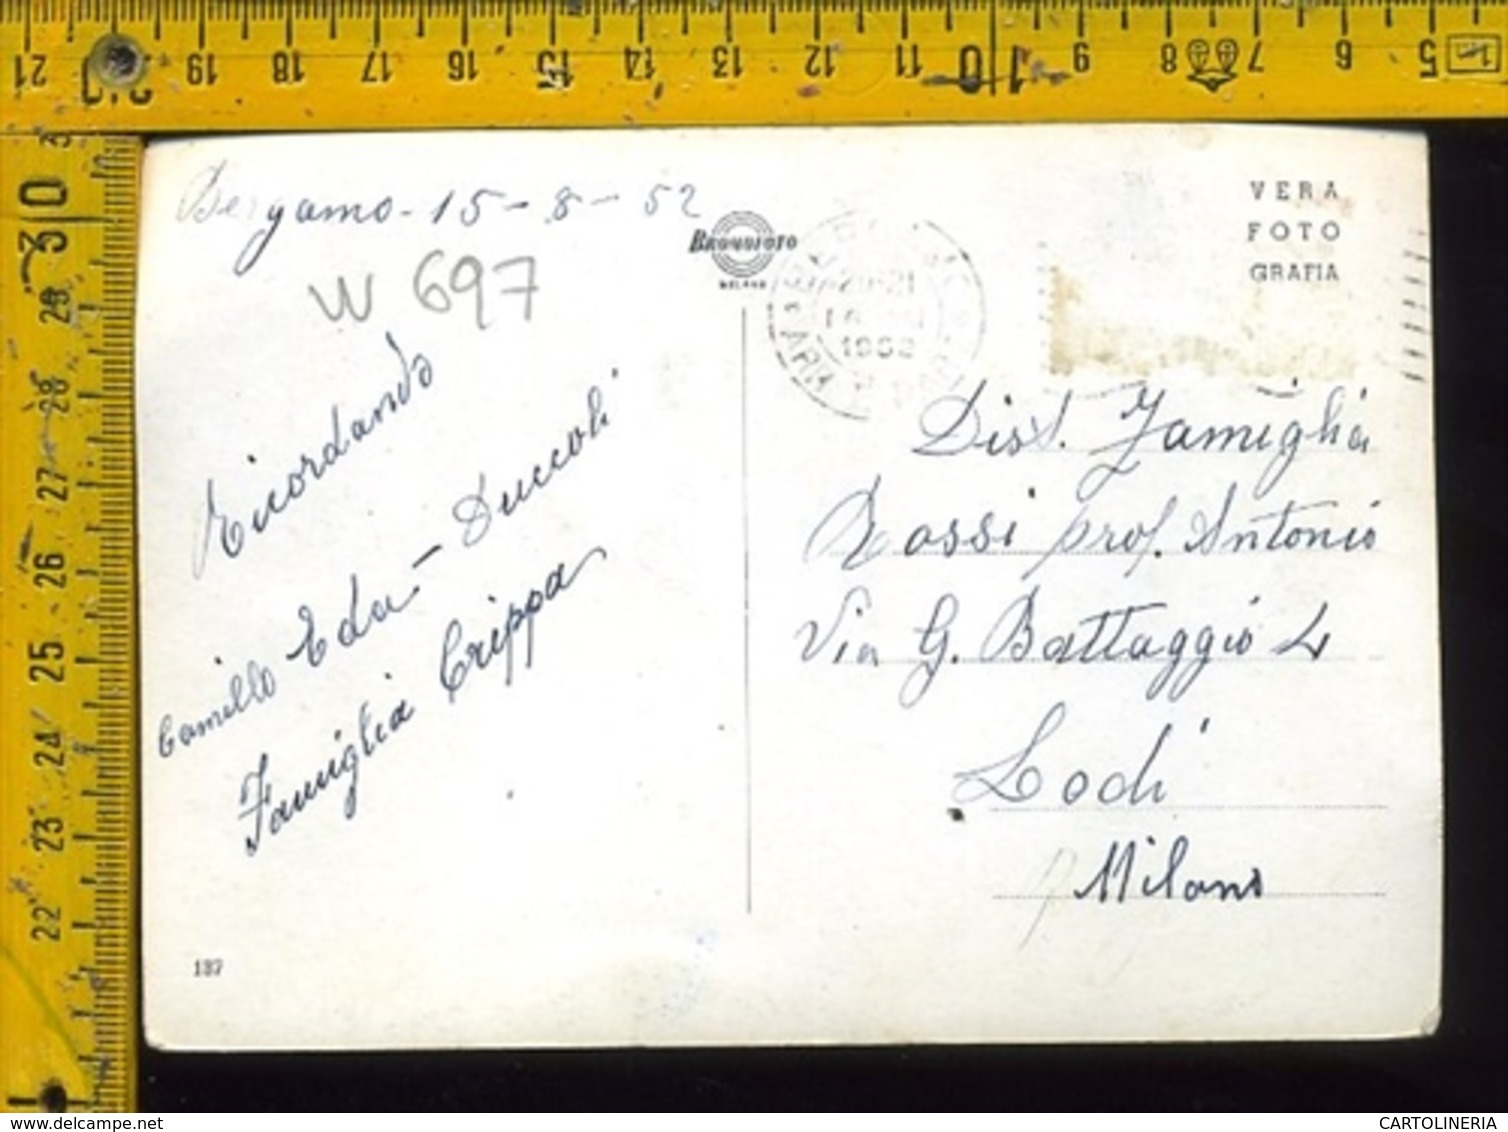 21 20 19 18 17 16 15 14 13 12 11 10 9 8 7 6 5
30 29 28 27 26 25 24 23 22
Bergamo - 15 - 8 - 52
W 697
BROMOFOTO
MILANO
VERA
FOTO
GRAFIA
20-21
1952
Ricordando
Camillo Eda - Duccoli
Famiglia Crippa
Dist. Famiglia
Rossi prof. Antonio
Via G. Battaggio 4
Lodi
Milano
137
delcampe.net
CARTOLINERIA